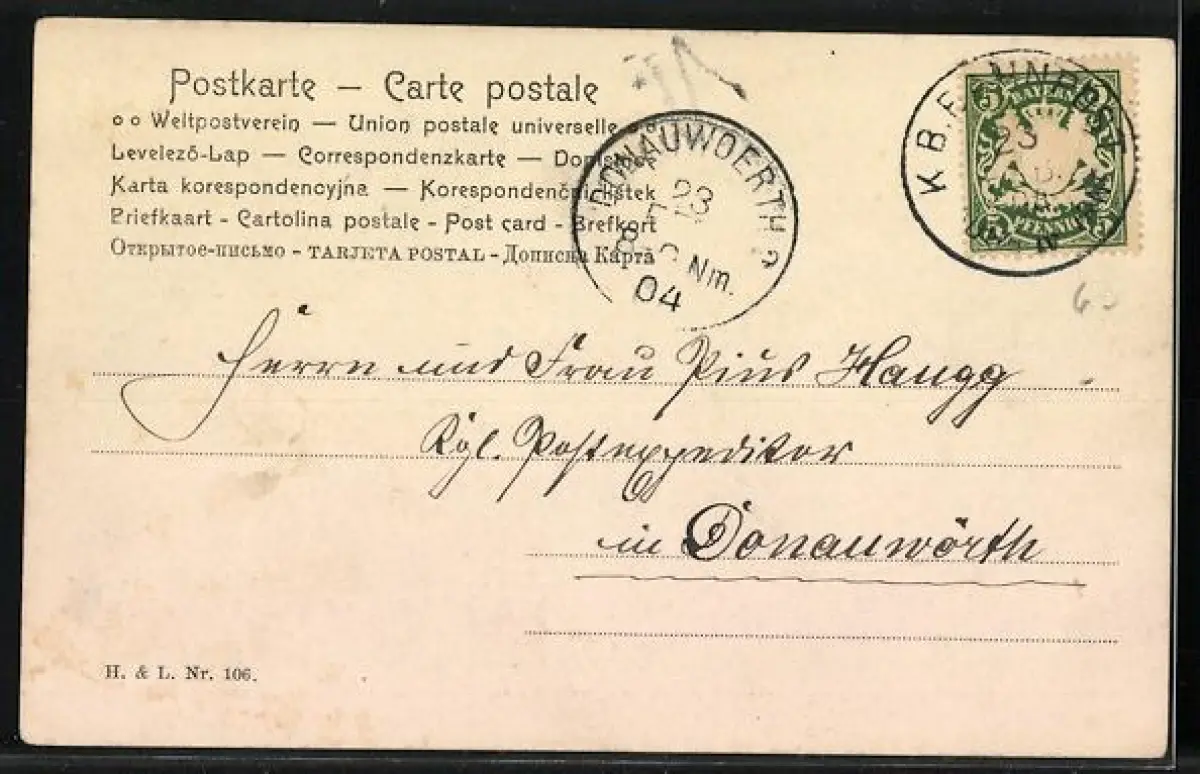 Postkarte – Carte postale
Weltpostverein — Union postale universelle
Levelező-Lap — Correspondenzkarte — Dopisnice
Karta korespondencyjna — Korespondenčni listek
Briefkaart - Cartolina postale - Post card - Brefkort
Открытое-письмо - TARJETA POSTAL - Дописна Карта
DONAUWOERTH 2
23
Nm.
04
K.B. BAHNPOST
23
5
BAYERN
PFENNIG
6.-
Herrn und Frau Pius Haugg
Kgl. Postexpeditor
in Donauwörth
H. & L. Nr. 106.